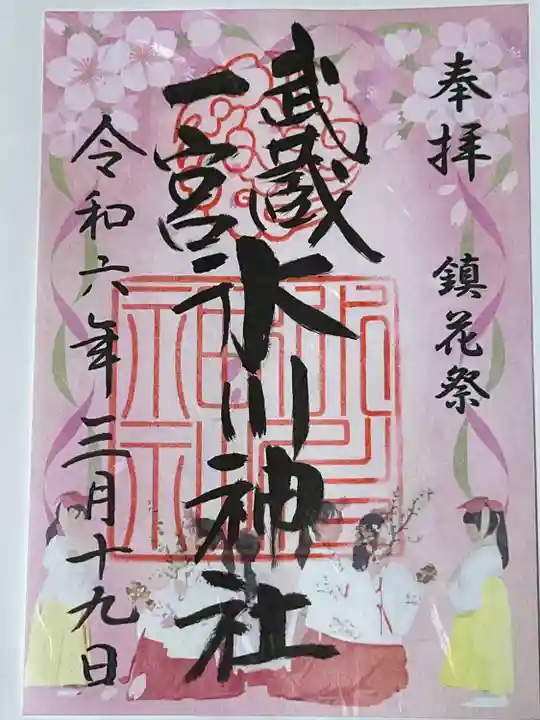 奉拝 鎮花祭
武蔵
一宮
氷川神社
令和六年三月十九日
氷川神社